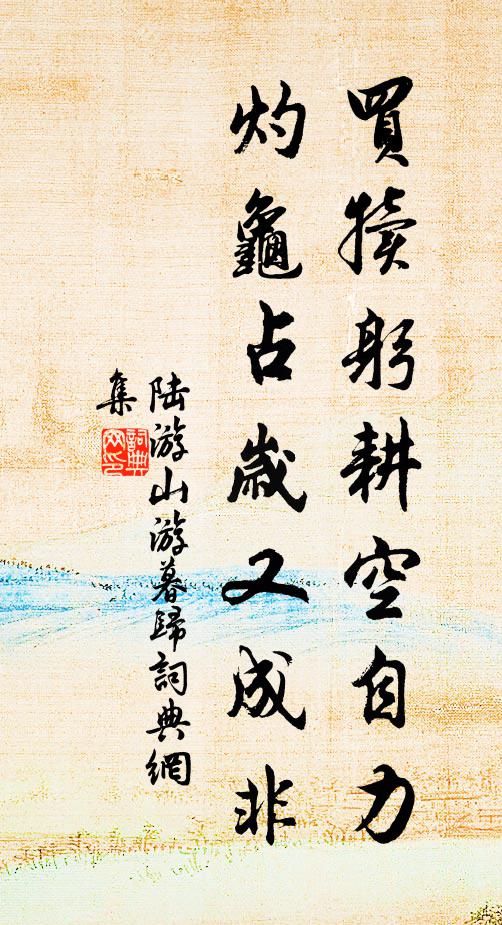 買犢躬耕空自力
灼龜占歲又成非
陆游山游暮歸詞典網
集
詞典网印